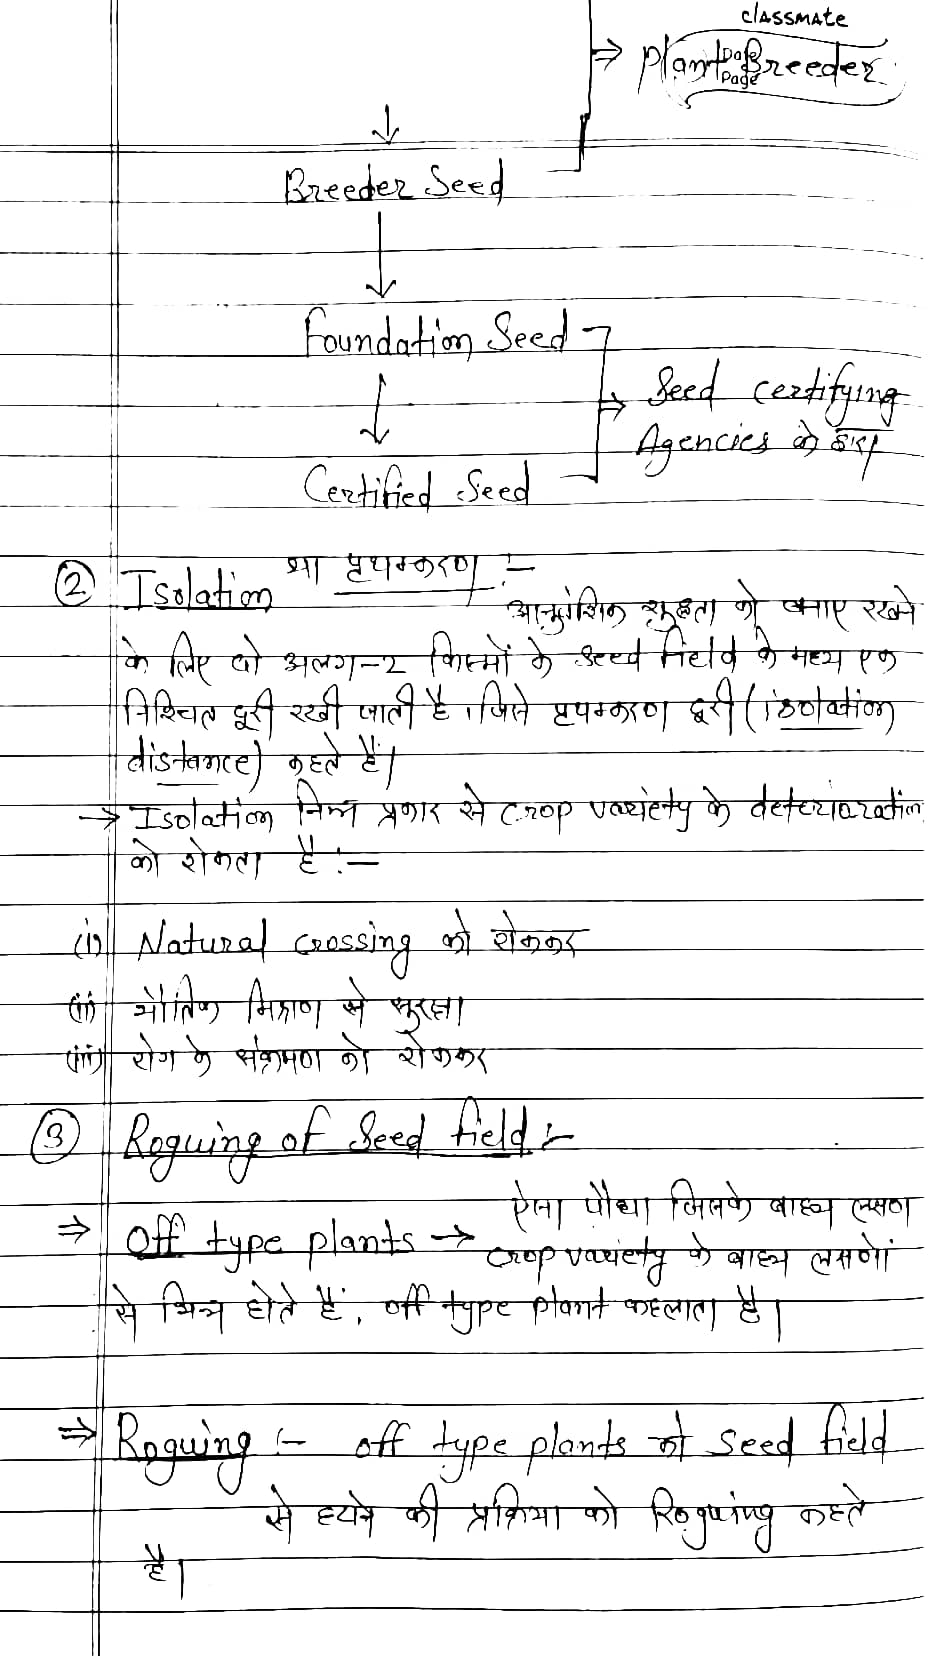 classmate
Date
Page
⇒ Plant Breeder
↓
Breeder Seed
↓
Foundation Seed
↓
⇒ Seed certifying
Agencies के द्वारा
Certified Seed
② Isolation या पृथक्करण :-
आनुवंशिक शुद्धता को बनाए रखने
के लिए दो अलग-2 किस्मों के seed field के मध्य एक
निश्चित दूरी रखी जाती है, जिसे पृथक्करण दूरी (isolation
distance) कहते हैं।
→ Isolation निम्न प्रकार से crop variety के deterioration
को रोकता है :-
(i) Natural crossing को रोककर
(ii) भौतिक मिश्रण से सुरक्षा
(iii) रोग के संक्रमण को रोककर
③ Roguing of Seed field :-
⇒ Off type plants → ऐसा पौधा जिसके बाह्य लक्षण
crop variety के बाह्य लक्षणों
से भिन्न होते हैं, off type plant कहलाता है।
⇒ Roguing :- off type plants को seed field
से हटाने की प्रक्रिया को Roguing कहते
है।